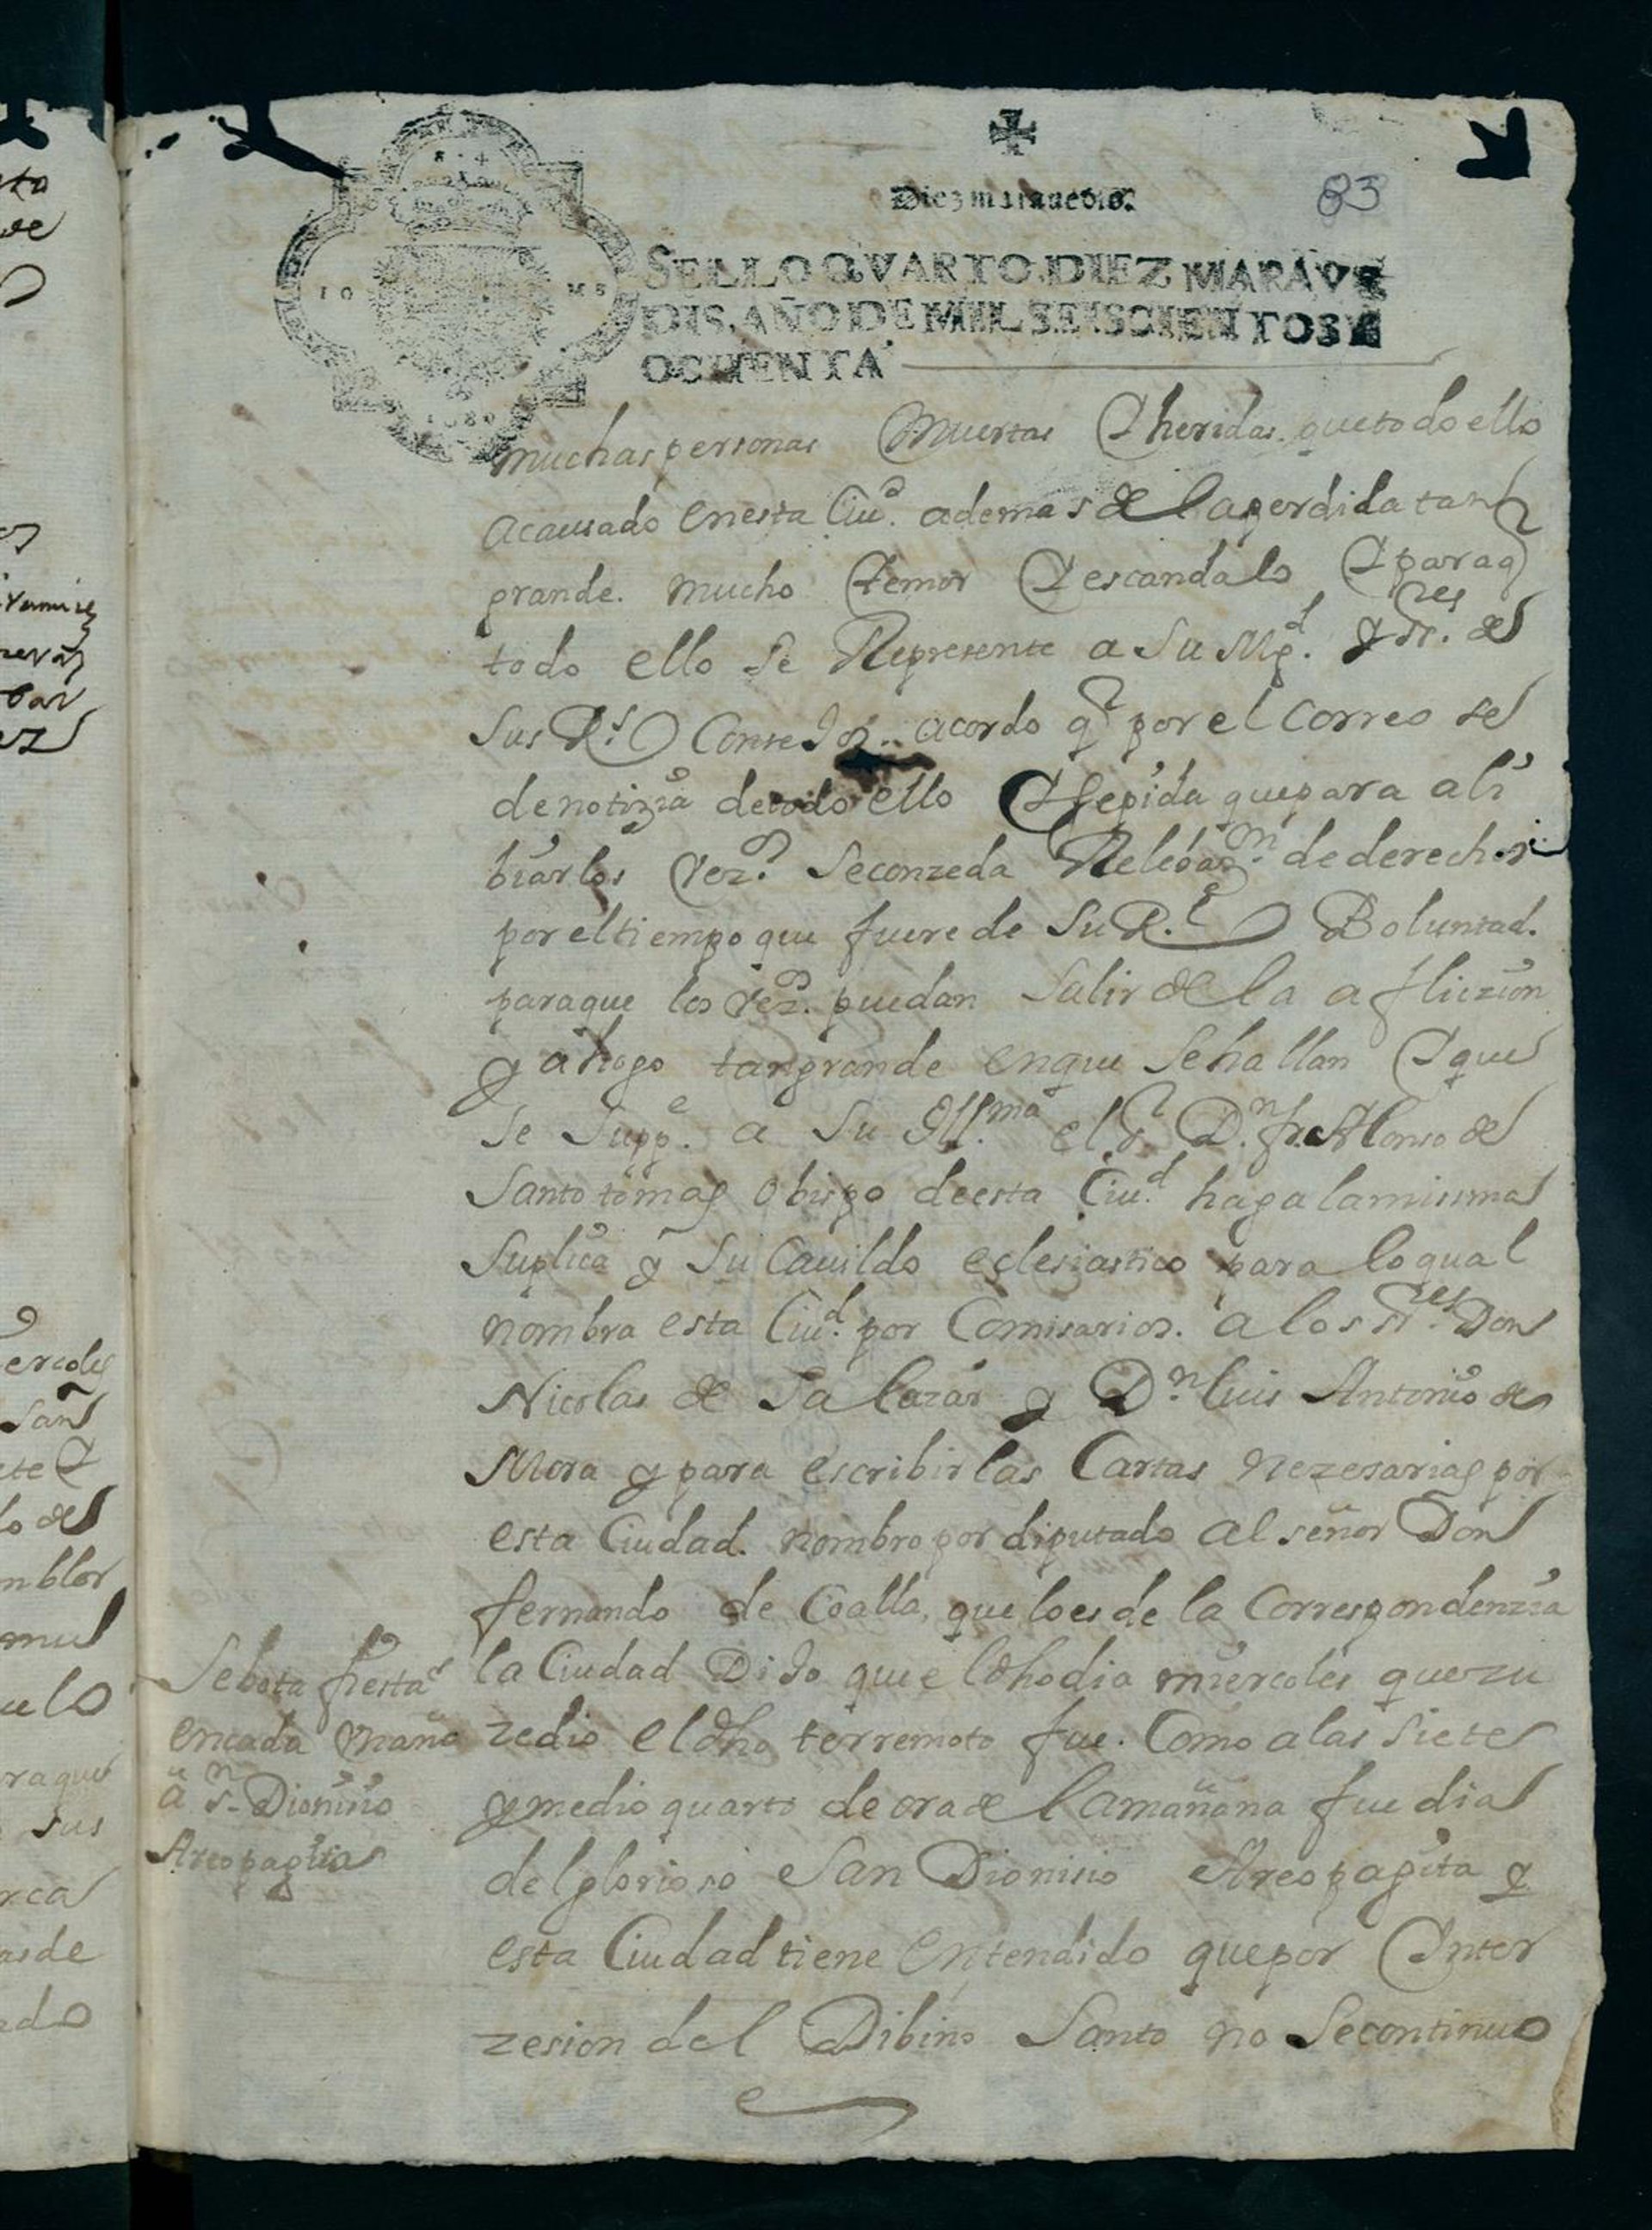 Diez maravedis.
83
SELLO QVARTO, DIEZ MARAVE
DIS, AÑO DE MIL SEISCIENTOS Y
OCHENTA.
muchas personas muertas y heridas. que todo ello
a causado en esta Ciud. ademas de la perdida tan
grande. mucho temor y escandalo y para q
todo ello se Represente a Su Mgd. y sres. de
sus Rs. Consejos.. acordo qe por el correo se
de notizia de todo ello y se pida que para ali
biar los vezos. se conzeda Relebazn. de derechos
por el tiempo que fuere de Su Rl. Boluntad.
para que los vezos. puedan salir de la aflicion
y ahogo tan grande en que se hallan y que
se suppe. a Su Illma. el sr. Dn. fr. Alonso de
Santo tomas obispo de esta Ciud. haga la misma
Suplica y su Cauildo eclesiastico para lo qual
nombra esta Ciud. por Comisarios. a los sres. Don
Nicolas de Salazar y Dn. luis Antonio de
Mora y para escribir las Cartas nezesarias por
esta Ciudad. nombro por diputado al señor Don
fernando de Coalla, que lo es de la Correspondenzia
Se bota fiesta
en cada vn año
a sn. Dionisio
Areopagita
la Ciudad Dijo que el dho dia miercoles que zu
zedio el dho terremoto fue. Como a las siete
y medio quarto de ora de la mañana fue dia
del glorioso San Dionisio Areopagita y
esta Ciudad tiene entendido que por Inter
zesion del Dibino Santo no se continuo